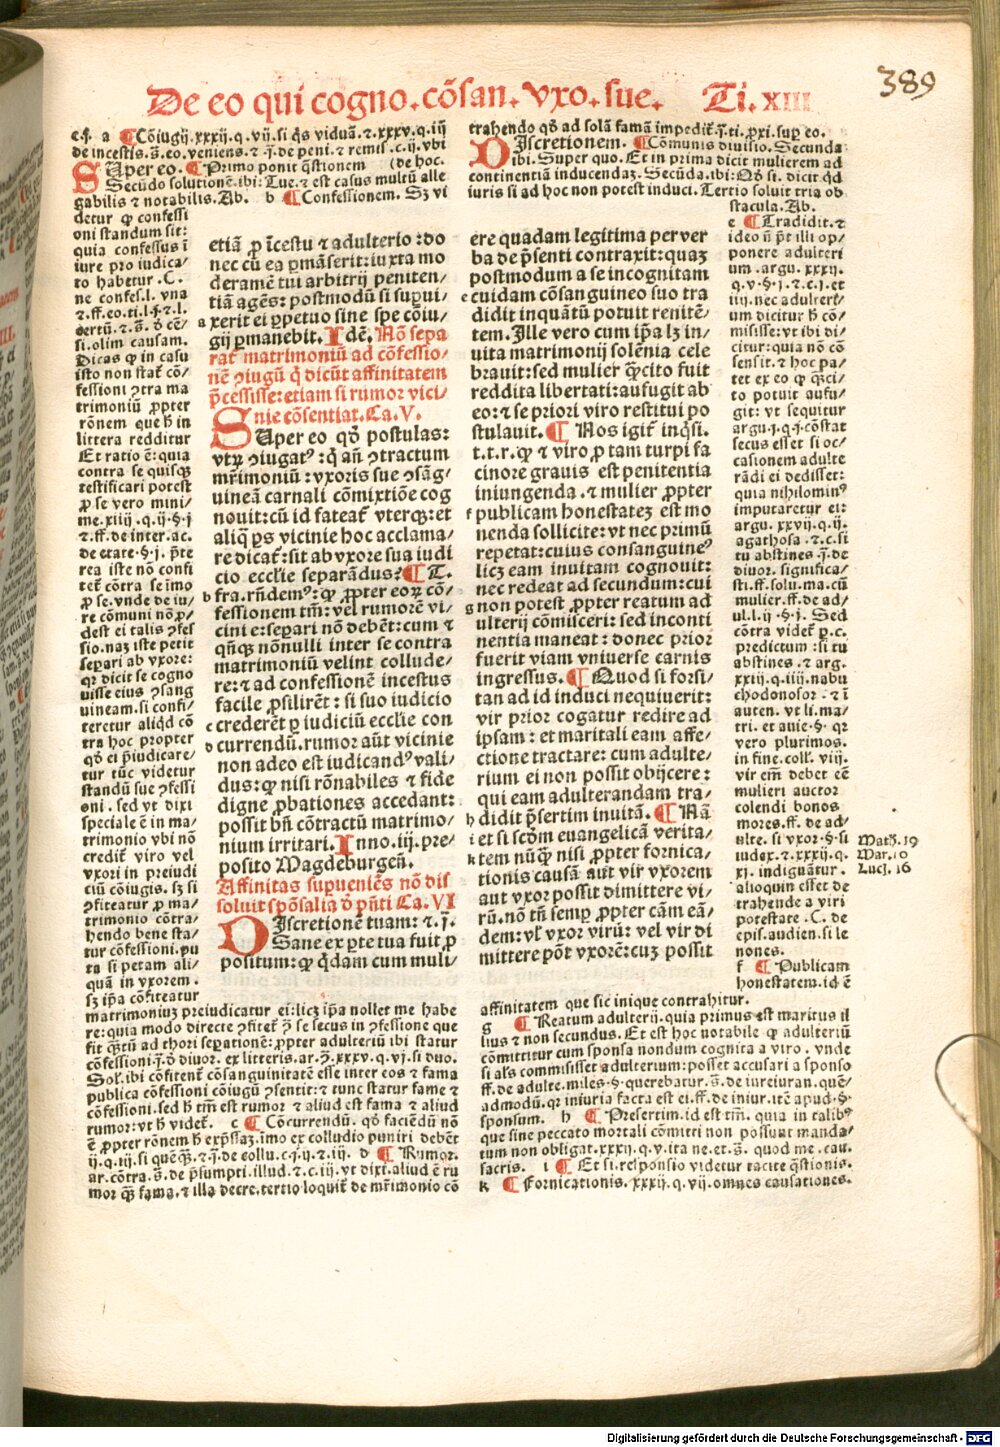 389
De eo qui cogno. cõsan. vxo. sue. Ti. XIII
de incestis. s̃. eo. veniens. ⁊ j̃. de peni. ⁊ remis. c. ij. vbi
Super eo. ¶ Primo ponit q̃stionem (de hoc.
Secũdo solutionẽ. ibi: Tue. ⁊ est casus multũ alle
gabilis ⁊ notabilis. Ab. b ¶ Confessionem. Sʒ vi
detur ꝙ confessi
oni standum sit:
quia confessus ĩ
iure pro iudica/
to habetur. C.
ne confes. l. vna
si. olim causam.
Dicas ꝙ in casu
isto non stat̃ cõ/
fessioni ꝯtra ma
trimoniũ ꝓpter
rõnem que h̃ in
littera redditur
Et ratio ẽ: quia
contra se quisqꝫ
testificari potest
ꝓ se vero mini/
me. xiiij. q. ij. § j
⁊ ff. de inter. ac.
de etate. § j. p̃te
rea iste nõ confi
tet̃ cõtra se imo
ꝓ se. vnde de iu/
re cõmuni nõ ꝓ/
dest ei talis ꝯfes
sio. naʒ iste petit
seꝑari ab vxore:
qꝛ dicit se cogno
uisse eius ꝯsang
uineam. si confi/
teretur aliqd cõ
tra hoc propter
qõ ei p̃iudicare/
tur tũc videtur
standũ sue ꝯfessi
oni. sed vt dixi
speciale ẽ in ma/
trimonio vbi nõ
credit̃ viro vel
vxori in preiudi
ciũ cõiugis. sʒ si
ꝯfiteatur ꝓ ma/
trimonio cõtra/
hendo bene sta/
tur cõfessioni. pu
ta si petam ali/
quã in vxorem.
sʒ ip̃a cõfiteatur
matrimoniuʒ preiudicatur ei: licʒ ip̃a nollet me habe
re: quia modo directe ꝯfitet̃ ꝓ se secus in ꝯfessione que
fit q̃ꝫtũ ad thori seꝑationẽ: ꝓpter adulteriũ ibi statur
cõfessioni. j̃. d̃ diuor. ex litteris. ar. ꝯ̃. xxxv. q. vj. si duo.
Sol. ibi cõfitent̃ cõsanguinitatẽ esse inter eos ⁊ fama
publica cõfessioni cõiugũ ꝯsentit: ⁊ tunc statur fame ⁊
cõfessioni. sed h̃ tm̃ est rumor ⁊ aliud est fama ⁊ aliud
rumor: vt h̃ videt̃. c ¶ Cõcurrendũ. qõ faciẽdũ nõ
ẽ ꝓpter rõnem h̃ exp̃ssaʒ. imo ex colludio puniri debẽt
ij. q. iij. si quẽqꝫ. ⁊ j̃. de collu. c. j. ij. ⁊ iij. d ¶ Rumor.
ar. cõtra. s̃. de p̃sumpti. illud. ⁊ c. iij. vt dixi. aliud ẽ ru
mor q̃ꝫ fama. ⁊ illa decre. tertio loquit̃ de mr̃imonio cõ
etiã ꝓ ĩcestu ⁊ adulterio: do
nec cũ ea ꝑmãserit: iuxta mo
deramẽ tui arbitrij peniten/
tiã agẽs: postmodũ si suꝑui/
a xerit ei ꝑpetuo sine spe cõiu/
gij ꝑmanebit. Idẽ. Nõ sepa
rat̃ matrimoniũ ad cõfessio/
nẽ ꝯiugũ q̃ dicũt affinitatem
p̃cessisse: etiam si rumor vici/
nie cõsentiat. Ca. V.
Super eo qõ postulas:
vtꝝ ꝯiugatꝰ: q̃ añ ꝯtractum
mr̃imoniũ: vxoris sue ꝯsãg/
uineã carnali cõmixtiõe cog
nouit: cũ id fateat̃ vterqꝫ: et
aliq̃ ꝑs vicinie hoc acclama/
re dicat̃: sit ab vxore sua iudi
cio eccl̃ie separãdus? ¶ T.
b fra. rñdemꝰ: ꝙ ꝓpter eoꝝ cõ/
fessionem tm̃: vel rumorẽ vi/
cini e: seꝑari nõ debẽt: cum ⁊
qñqꝫ nõnulli inter se contra
matrimoniũ velint collude/
re: ⁊ ad confessionẽ incestus
facile ꝓsilirẽt: si suo iudicio
c crederẽt ꝑ iudiciũ eccl̃ie con
d currendũ. rumor aũt vicinie
non adeo est iudicandꝰ vali/
dus: ꝙ nisi rõnabiles ⁊ fide
digne ꝓbationes accedant:
possit bñ cõtractũ matrimo/
nium irritari. Inno. iij. pre/
posito Magdeburgeñ.
Affinitas suꝑueniẽs nõ dis
soluit spõsalia d̃ p̃nti Ca. VI
Discretionẽ tuam: ⁊. j̃.
Sane ex ꝑte tua fuit ꝓ
positum: ꝙ q̃dam cum muli/
trahendo qõ ad solã famã impedit̃. j̃. ti. ꝓxi. suꝑ eo.
Discretionem. ¶ Cõmunis diuisio. Secunda
ibi. Super quo. Et in prima dicit mulierem ad
continentiã inducendaʒ. Secũda. ibi: Qõ si. dicit q̃d
iuris si ad hoc non potest induci. Tertio soluit tria ob
stacula. Ab.
ere quadam legitima per ver
ba de p̃senti contraxit: quaʒ
postmodum a se incognitam
e cuidam cõsanguineo suo tra
didit inquãtũ potuit renitẽ/
tem. Ille vero cum ip̃a lʒ in/
uita matrimonij solẽnia cele
brauit: sed mulier q̃cito fuit
reddita libertati: aufugit ab
eo: ⁊ se priori viro restitui po
stulauit. ¶ Nos igit̃ inq̃si.
t. t. r. ꝙ ⁊ viro ꝓ tam turpi fa
cinore grauis est penitentia
iniungenda. ⁊ mulier ꝓpter
f publicam honestateʒ est mo
nenda sollicite: vt nec primũ
repetat: cuius consanguineꝰ
licʒ eam inuitam cognouit:
nec redeat ad secundum: cui
g non potest ꝓpter reatum ad
ulterij cõmisceri: sed inconti
nentia maneat: donec prior
fuerit viam vniuerse carnis
ingressus. ¶ Quod si forsi/
tan ad id induci nequiuerit:
vir prior cogatur redire ad
ipsam: et maritali eam affe/
ctione tractare: cum adulte/
rium ei non possit obijcere:
qui eam adulterandam tra/
h didit p̃sertim inuitã. ¶ Nã
i et si scd̃m euangelicã verita/
k tem nũq̃ nisi ꝓpter fornica/
tionis causã aut vir vxorem
aut vxor possit dimittere vi/
rũ. nõ tñ semꝑ ꝓpter cãm eã/
dem: vl̃ vxor virũ: vel vir di
mittere põt vxorẽ: cuʒ possit
e ¶ Tradidit. ⁊
ideo ñ p̃t illi op/
ponere adulteri
um. argu. xxxij.
q. v. § j. ⁊ c. j. et
iij. nec adulteri/
um dicitur h̃ cõ/
misisse: vt ibi di/
citur: quia nõ cõ
sensit. ⁊ hoc pa/
tet ex eo ꝙ q̃ꝫci/
to potuit aufu/
git: vt sequitur
argu. j. q. j. cõstat
secus esset si oc/
casionem adulte
rãdi ei dedisset:
quia nihilominꝰ
imputaretur ei:
argu. xxvij. q. ij.
agathosa. ⁊ c. si
tu abstines. j̃. de
diuor. significa/
sti. ff. solu. ma. cũ
mulier. ff. de ad/
ul. l. ij. § j. Sed
cõtra videt̃ ꝑ. c.
predictum: si tu
abstines. ⁊ arg.
xxij. q. iiij. nabu
chodonosor. ⁊ ĩ
auten. vt li. ma/
tri. et auie. § qꝛ
vero plurimos.
in fine. coll. viij.
vir em̃ debet eẽ
mulieri auctor
colendi bonos
mores. ff. de ad/
ulte. si vxor. § si
iudex. ⁊. xxxij. q.
xj. indignãtur.
alioquin esset de
trahende a viri
potestate. C. de
epis. audien. si le
nones.
f ¶ Publicam
honestatem. id ẽ
affinitatem que sic inique contrahitur.
g ¶ Reatum adulterij. quia primus est maritus il
lius ⁊ non secundus. Et est hoc notabile ꝙ adulteriũ
cõmittitur cum sponsa nondum cognita a viro. vnde
si al̃s commisisset adulterium: posset accusari a sponso
ff. de adulte. miles. §. querebatur. s̃. de iureiuran. quẽ/
admodũ. qꝛ iniuria facta est ei. ff. de iniur. itẽ apud. §
sponsum. h ¶ Presertim. id est tm̃. quia in talibꝰ
que sine peccato mortali cõmitti non possunt manda/
tum non obligat. xxxij. q. v. ita ne. et. s̃. quod me. cau.
sacris. i ¶ Et si. responsio videtur tacite q̃stionis.
k ¶ Fornicationis. xxxij. q. vij. omnes causationes.
Math̃. 19
Mar. 10
Lucj. 16
Digitalisierung gefördert durch die Deutsche Forschungsgemeinschaft - DFG